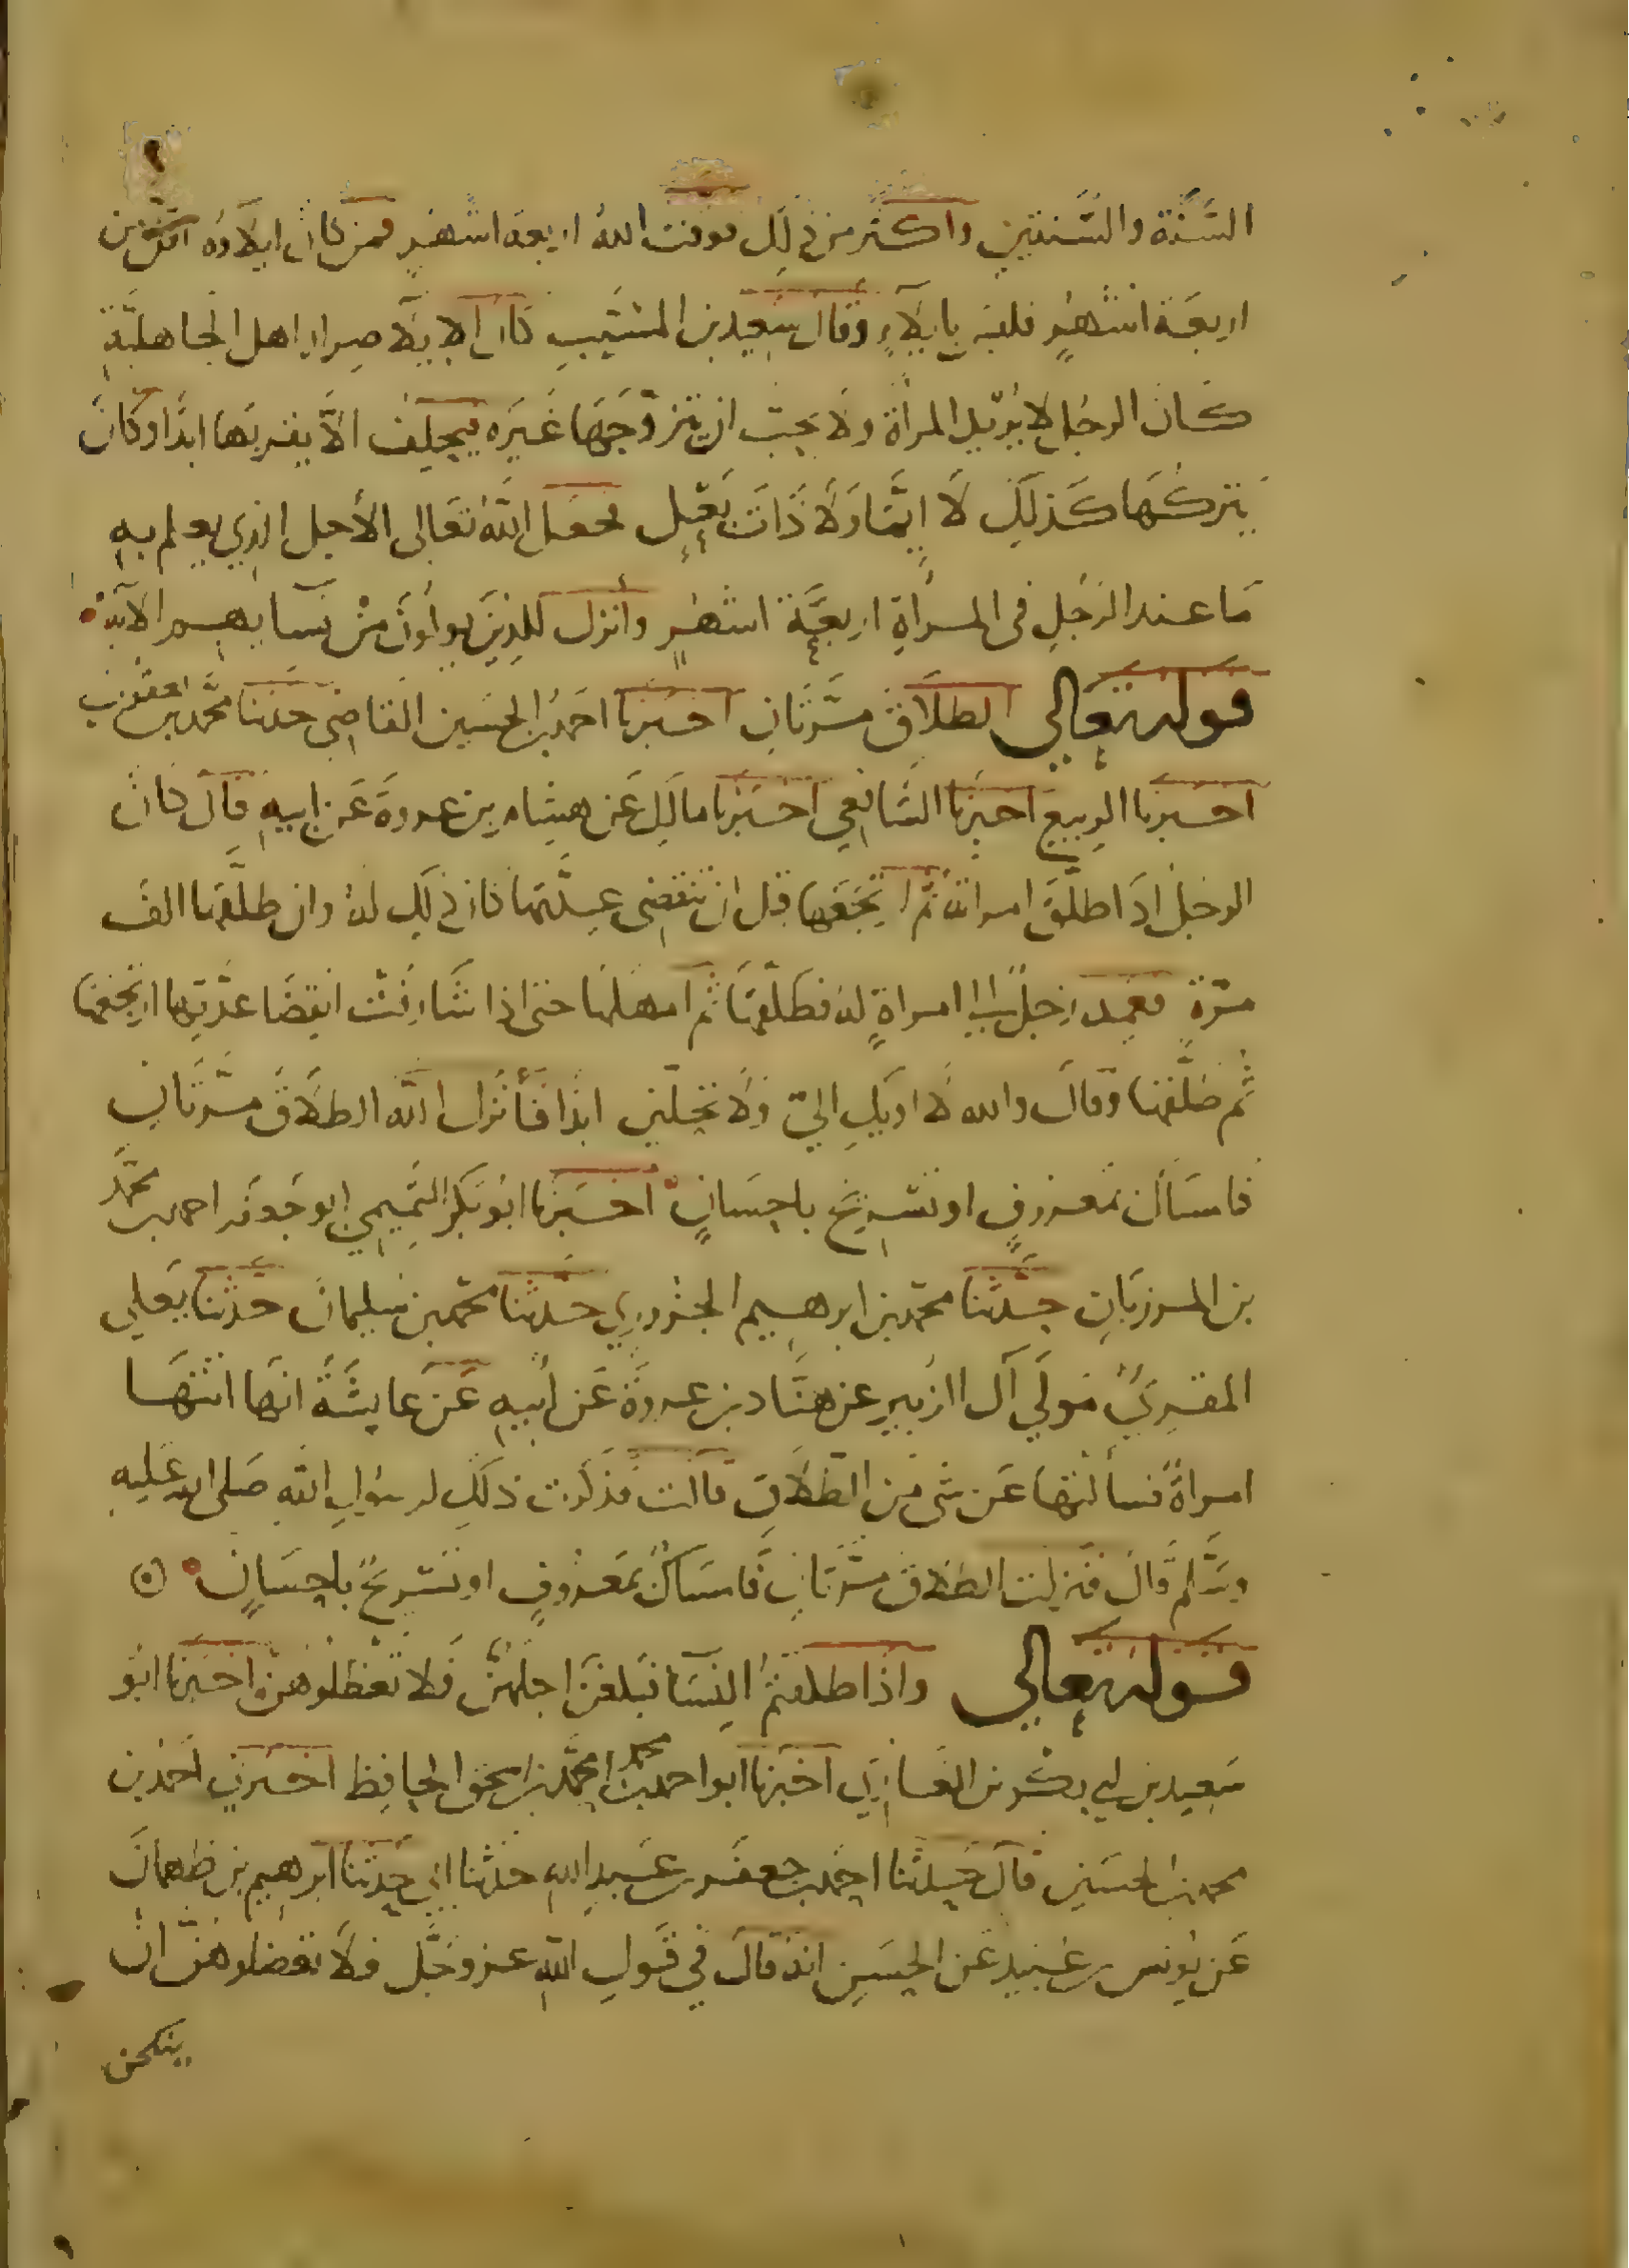 السَّنَة والسَّنتين واكثر من ذلك فوقت الله اربعة اشهر فمن كان ايلاؤه اقل من
اربعة اشهر فليس بايلاء وقال سعيد بن المسيب كان الايلا ضرار اهل الجاهلية
كان الرجل لا يريد المرأة ولا يحب ان يتزوجها غيره فيحلف الا يقربها ابدا وكان
يتركها كذلك لا ايما ولا ذات بعل فجعل الله تعالى الأجل الذي يعلم به
ما عند الرجل في المرأة اربعة اشهر وأنزل للذين يولون من نسايهم الآية
قوله تعالى الطلاق مرتان اخبرنا احمد بن الحسين القاضي حدثنا محمد بن يعقوب
اخبرنا الربيع اخبرنا الشافعي اخبرنا مالك عن هشام بن عروة عن ابيه قال كان
الرجل اذا طلق امراته ثم ارتجعها قبل ان تنقضي عدتها كان ذلك له وان طلقها الف
مرة فعمد رجل الى امراة له فطلقها ثم امهلها حتى اذا شارفت انقضا عدتها ارتجعها
ثم طلقها وقال والله لا اويك الي ولا تحلين ابدا فأنزل الله الطلاق مرتان
فامساك بمعروف او تسريح باحسان اخبرنا ابو بكر التميمي ابو جعفر احمد بن محمد
بن المرزبان حدثنا محمد بن ابرهيم الحزوري حدثنا محمد بن سليمان حدثنا يعلى
المقري مولى آل الزبير عن هشام بن عروة عن أبيه عن عايشة انها اتتها
امراة فسألتها عن شي من الطلاق قالت فذكرت ذلك لرسول الله صلى الله عليه
وسلم قال فنزلت الطلاق مرتان فامساك بمعروف او تسريح باحسان
قوله تعالى واذا طلقتم النسا فبلغن اجلهن فلا تعظلوهن اخبرنا ابو
سعيد بن ابي بكر بن الغازي اخبرنا ابو احمد محمد بن محمد بن اسحق الحافظ اخبرني احمد بن
محمد بن الحسين قال حدثنا احمد بن جعفر بن عبيد الله حدثنا ابي حدثنا ابرهيم بن طهمان
عن يونس بن عبيد عن الحسن انه قال في قول الله عز وجل فلا تعضلوهن ان
ينكحن